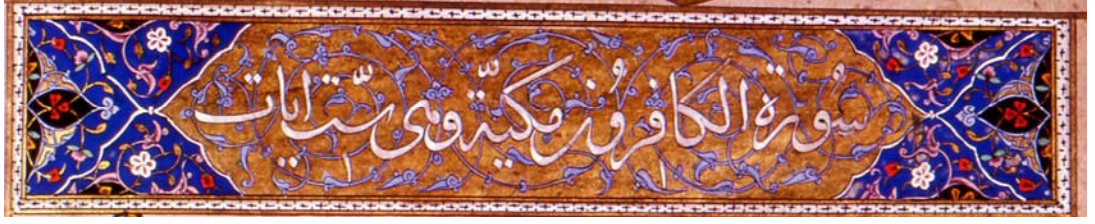 سورة الكافرون مكية وهی ست ایات